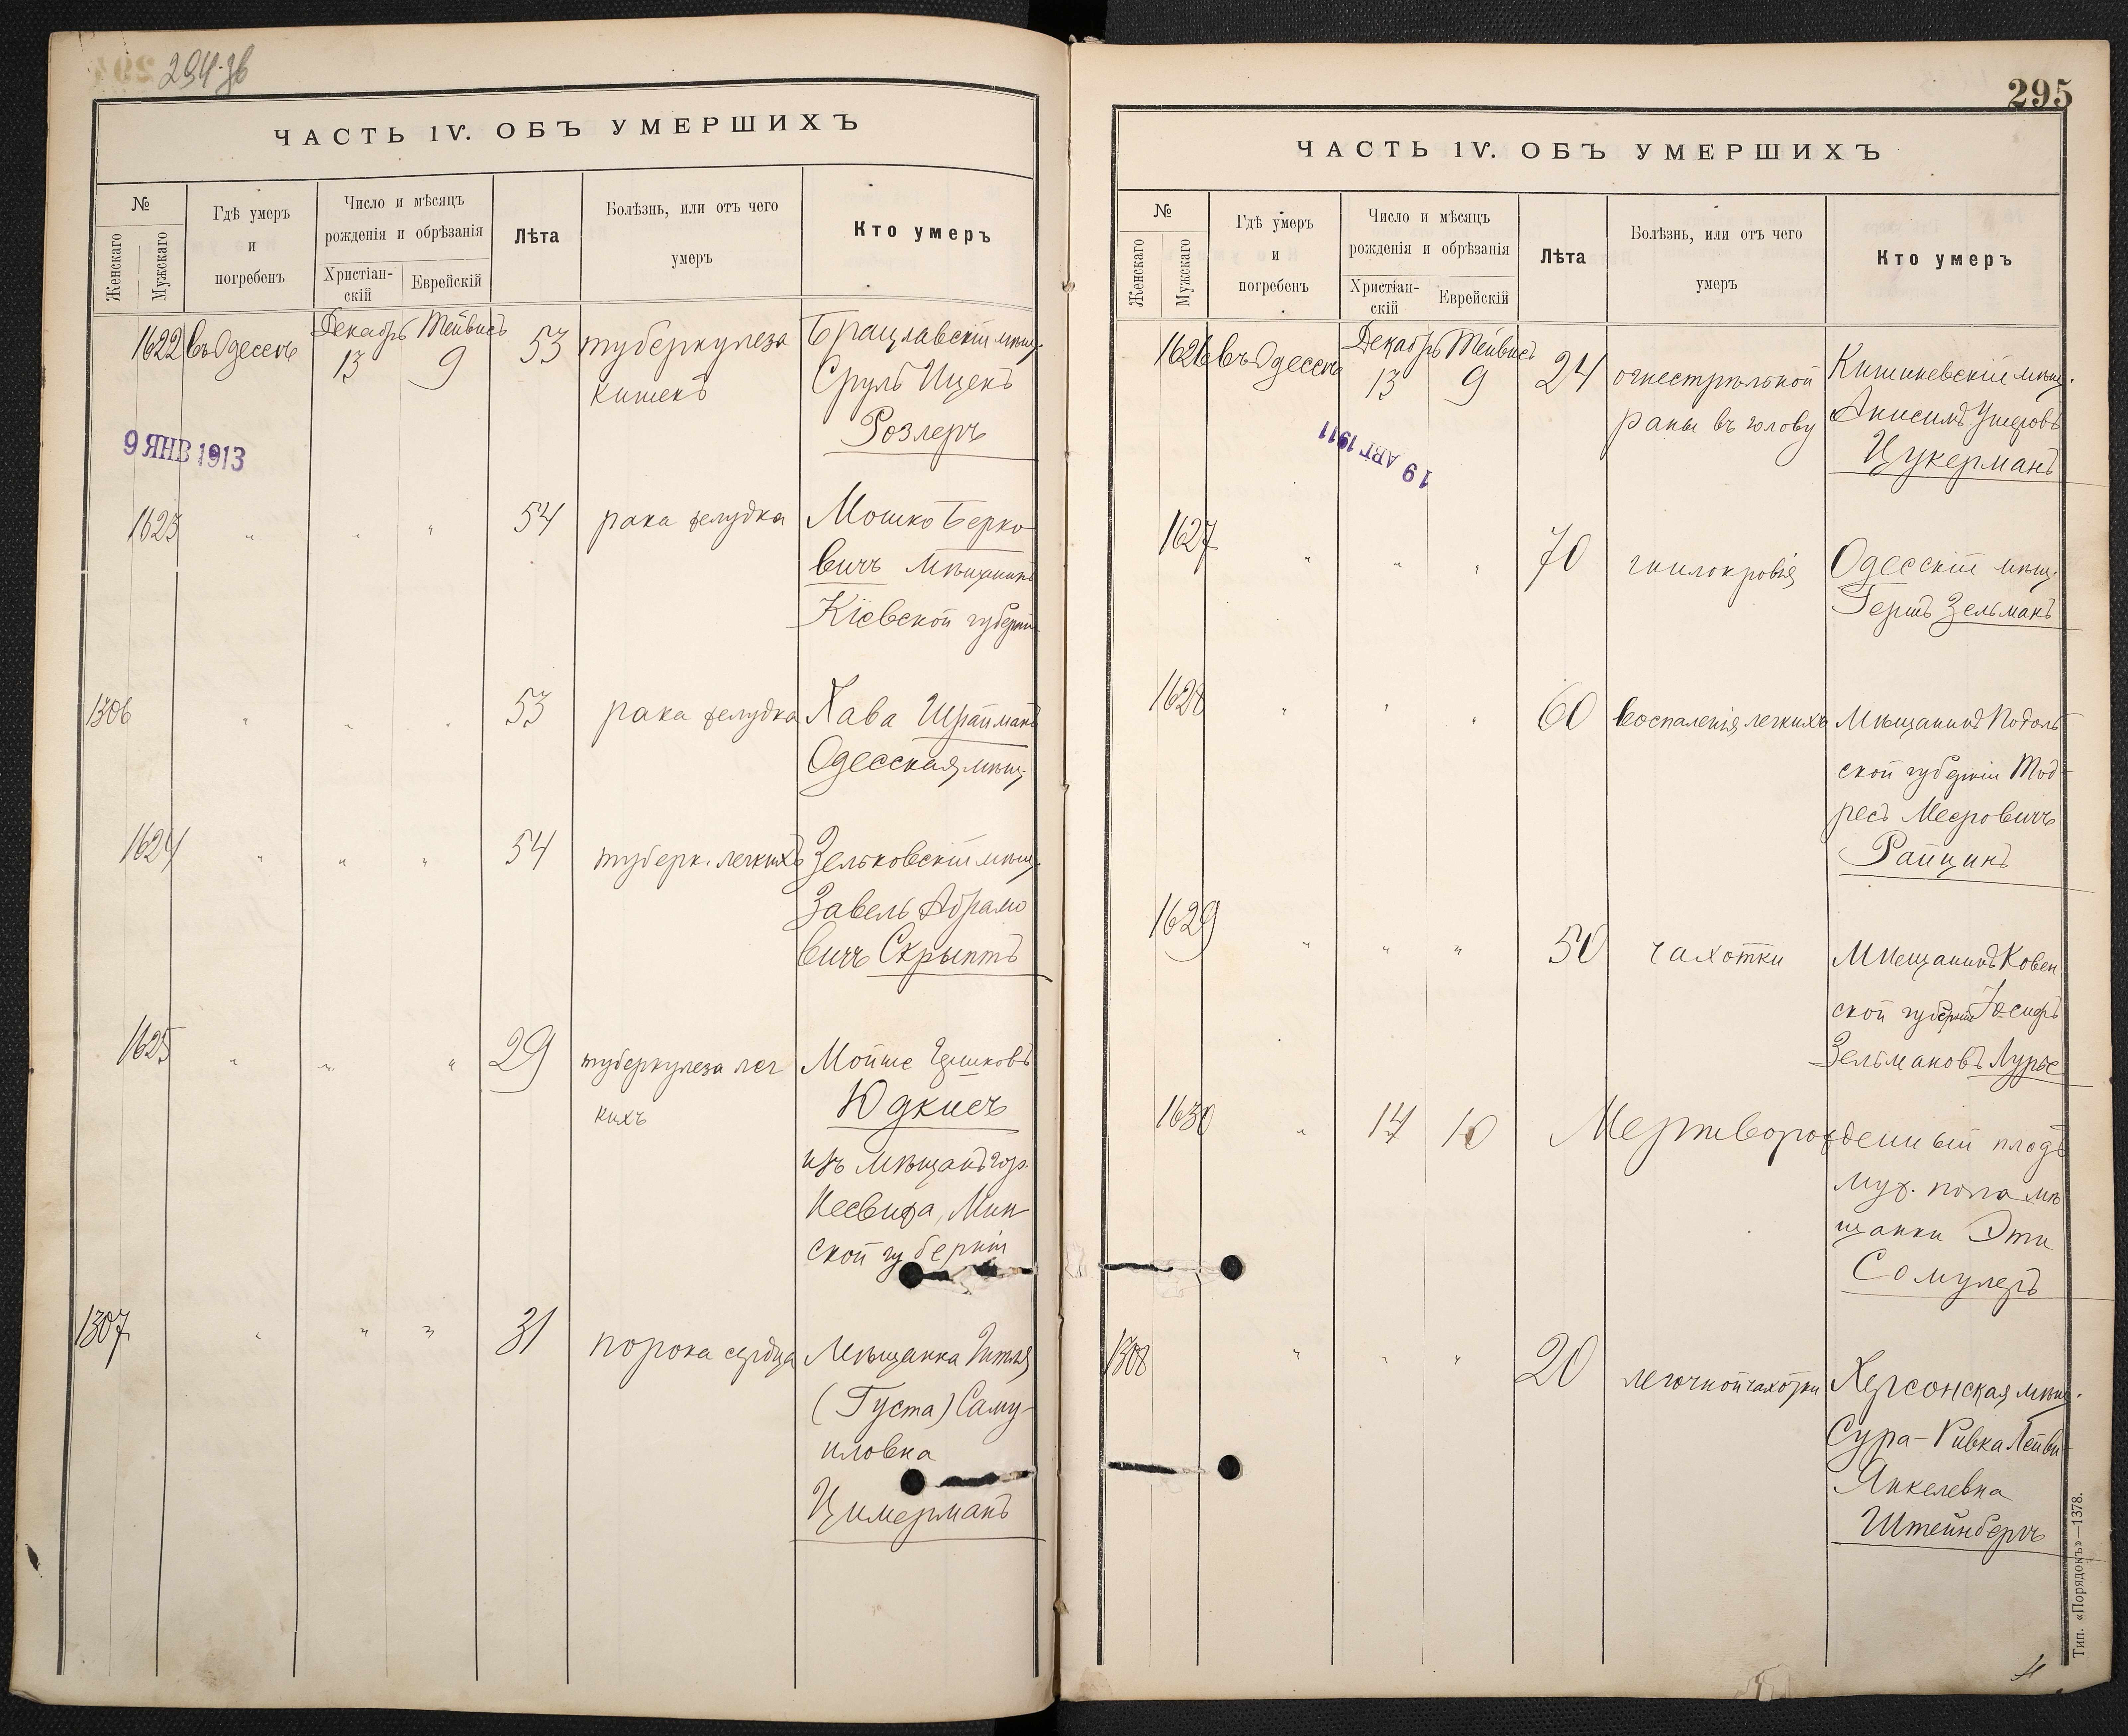 294 зв
ЧАСТЬ IV. ОБЪ УМЕРШИХЪ
№
Женскаго
Мужскаго
Гдѣ умеръ
и
погребенъ
Число и мѣсяцъ
рожденія и обрѣзанія
Христіан-
скій
Еврейскій
Лѣта
Болѣзнь, или отъ чего
умеръ
Кто умеръ
1622 въ Одессѣ Декабрь 13 Тейвисъ 9 53 туберкулеза Брацлавскій мѣщ.
кишекъ Сруль Ицекъ
Розлеръ
9 ЯНВ 1913
1623 " " " 54 рака желудка Мошко Берко
вичъ мѣщанинъ
Кіевской губерніи
1306 " " " 53 рака желудка Хава Шрайманъ
Одесская мѣщ.
1624 " " " 54 туберк. легкихъ Зельковскій мѣщ.
Завель Абрамо
вичъ Скрыптъ
1625 " " " 29 туберкулеза лег Мойше
кихъ Юдкисъ
изъ мѣщанъ гор.
Несвижа, Мин
ской губерніи
1307 " " " 31 порока сердца Мѣщанка
(Густа) Саму-
иловна
Цимерманъ
295
ЧАСТЬ IV. ОБЪ УМЕРШИХЪ
№
Женскаго
Мужскаго
Гдѣ умеръ
и
погребенъ
Число и мѣсяцъ
рожденія и обрѣзанія
Христіан-
скій
Еврейскій
Лѣта
Болѣзнь, или отъ чего
умеръ
Кто умеръ
1626 въ Одессѣ Декабрь 13 Тейвисъ 9 24 огнестрѣльной Кишиневскій мѣщ.
раны въ голову Анисимъ Ушеровъ
Цукерманъ
19 АВГ 1911
1627 " " " 70 гнилокровія Одесскій мѣщ.
Гершъ Зельманъ
1628 " " " 60 воспаленія легкихъ Мѣщанинъ Подоль
ской губерніи Тод-
ресъ Меєровичъ
Райцинъ
1629 " " " 50 чахотки Мѣщанинъ Ковен
ской губерніи Іосифъ
Зельмановъ Лурье
1630 " 14 10 Мертворожденный плодъ
муж. пола мѣ
щанки Эти
Сомулеръ
1308 " " " 20 легочной чахотки Херсонская мѣщ.
Сура-Ривка Лейви-
Янкелевна
Штейнбергъ
Тип. «Порядокъ»—1378.